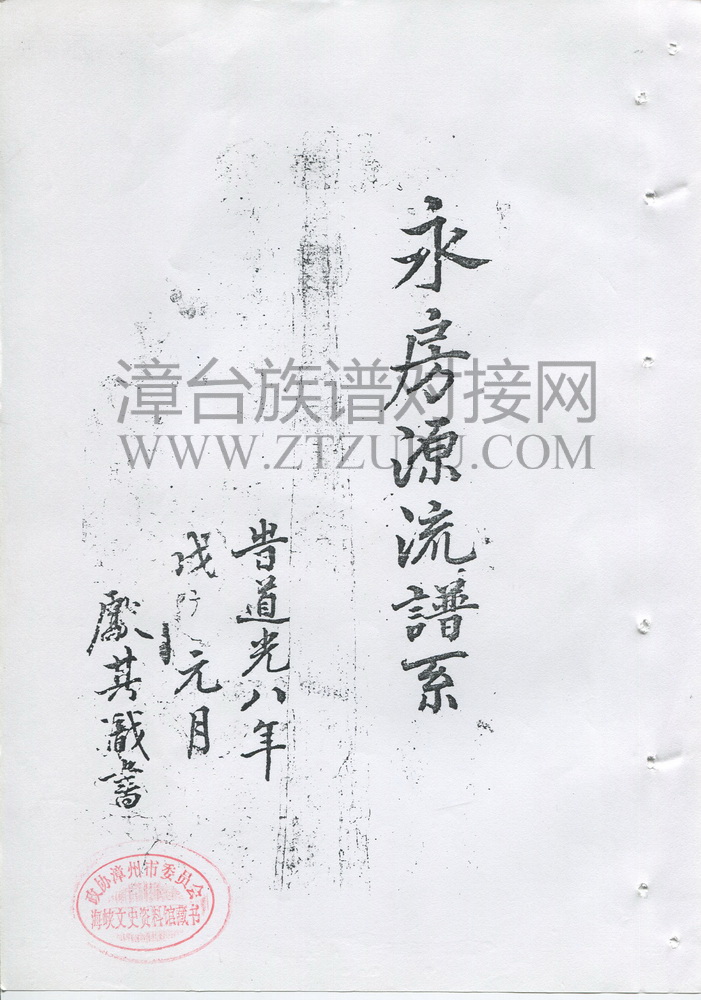 永房源流譜系
旹道光八年
戊 元月
其 書
漳台族谱对接网
WWW.ZTZUPU.COM
政协漳州市委员会
海峡文史资料馆藏书